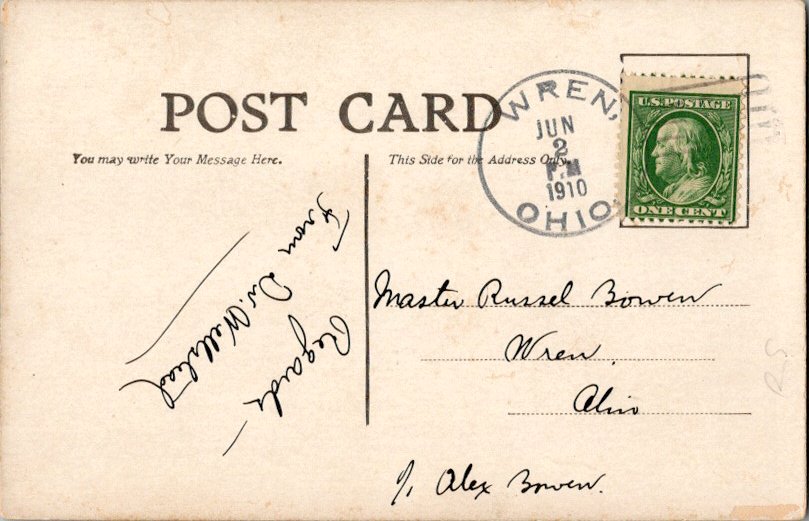 POST CARD
You may write Your Message Here.
This Side for the Address Only.
WREN,
JUN
2
P.M
1910
OHIO
U.S. POSTAGE
ONE CENT
Regards
From Dr. Wellstead
Master Russel Bowen
Wren,
Ohio
c/o Alex Bowen.
R-S